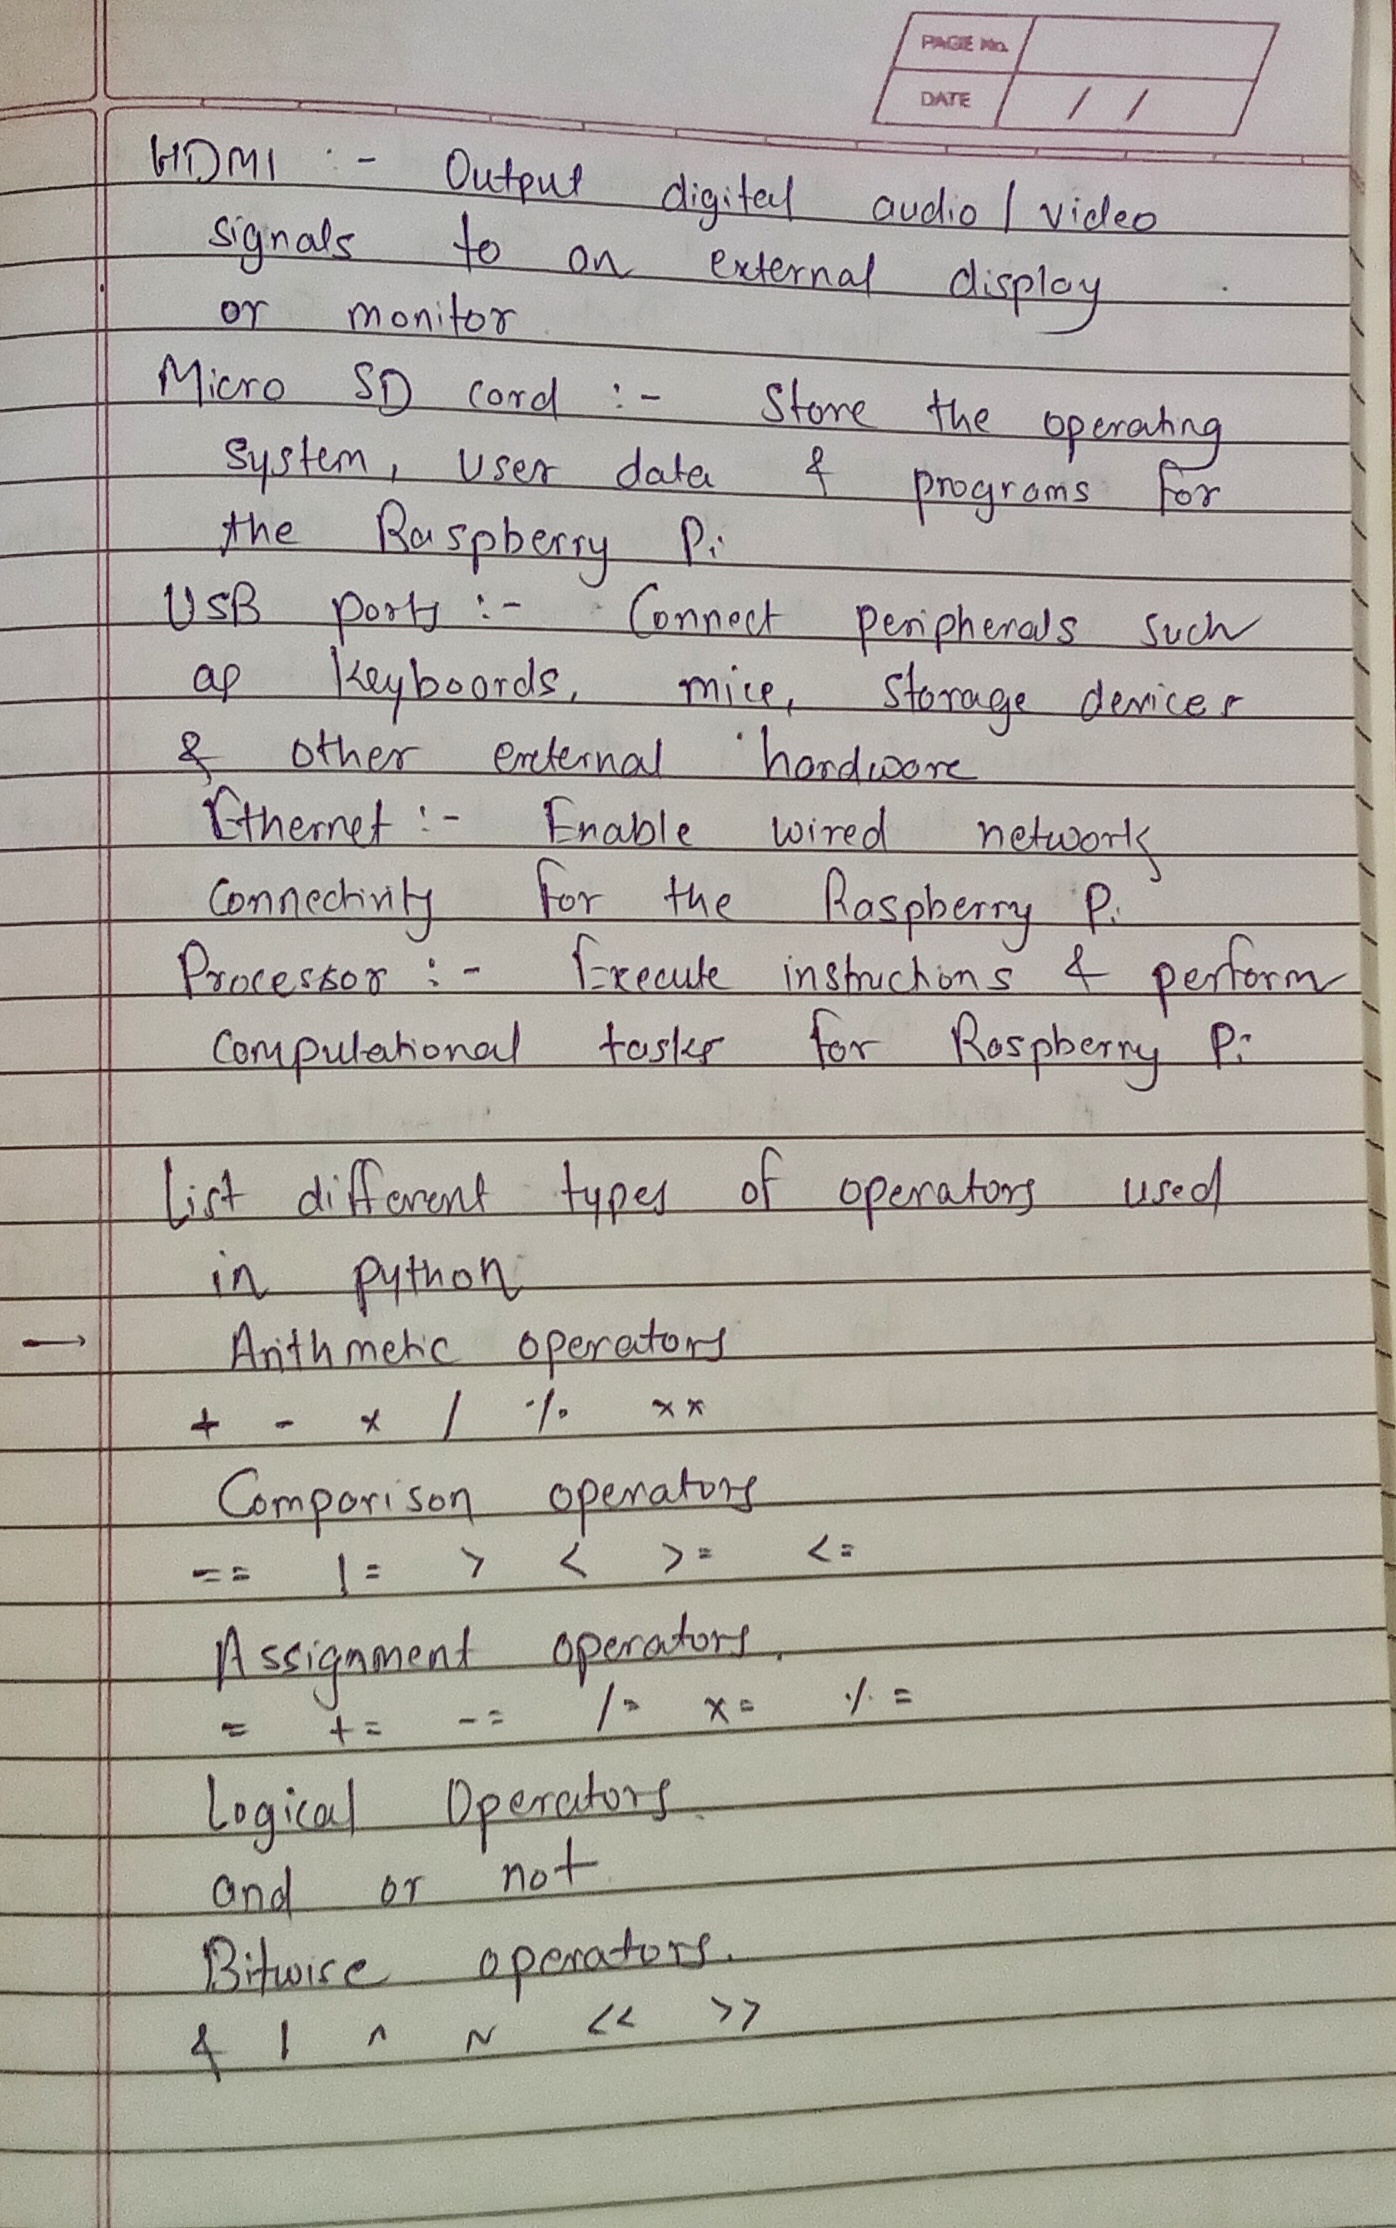 PAGE No.
DATE / /
HDMI :- Output digital audio / video
signals to an external display
or monitor
Micro SD card :- Store the operating
system, user data & programs for
the Raspberry Pi
USB ports :- Connect peripherals such
as keyboards, mice, storage devices
& other external hardware
Ethernet :- Enable wired network
connectivity for the Raspberry Pi
Processor :- Execute instructions & perform
computational tasks for Raspberry Pi
List different types of operators used
in python
→ Arithmetic operators
+ - * / % **
Comparison operators
== != > < >= <=
Assignment operators.
= += -= /= *= %=
Logical Operators.
and or not
Bitwise operators.
& | ^ ~ << >>